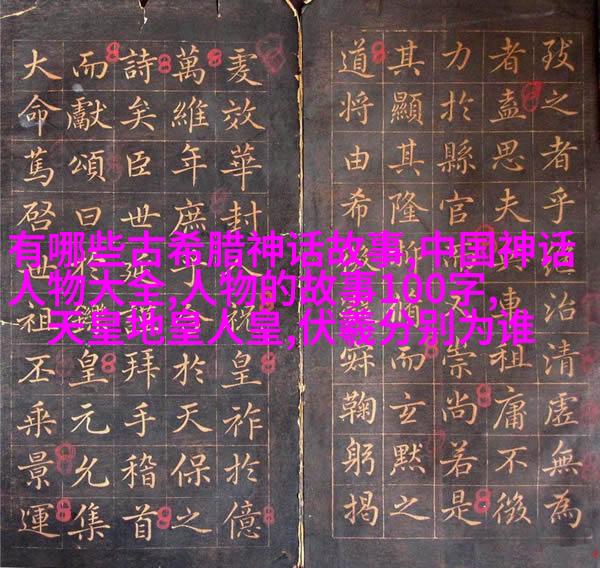 有哪些古希腊神话故事,中国神话
人物大全,人物的故事100字,
天皇地皇人皇,伏羲分别为谁
之者乎治清虛無為
者盍思夫專祖庸不
力於縣官不崇尚若是
其顯其隆斯而玄默之
道將由希鞠躬揭
效華封人祝皇祚於億
萬維年庶於天保之
詩矣臣世延謹拜手稽首
而獻頌曰於皇元允集
大命篤啓世祖丕乘景運